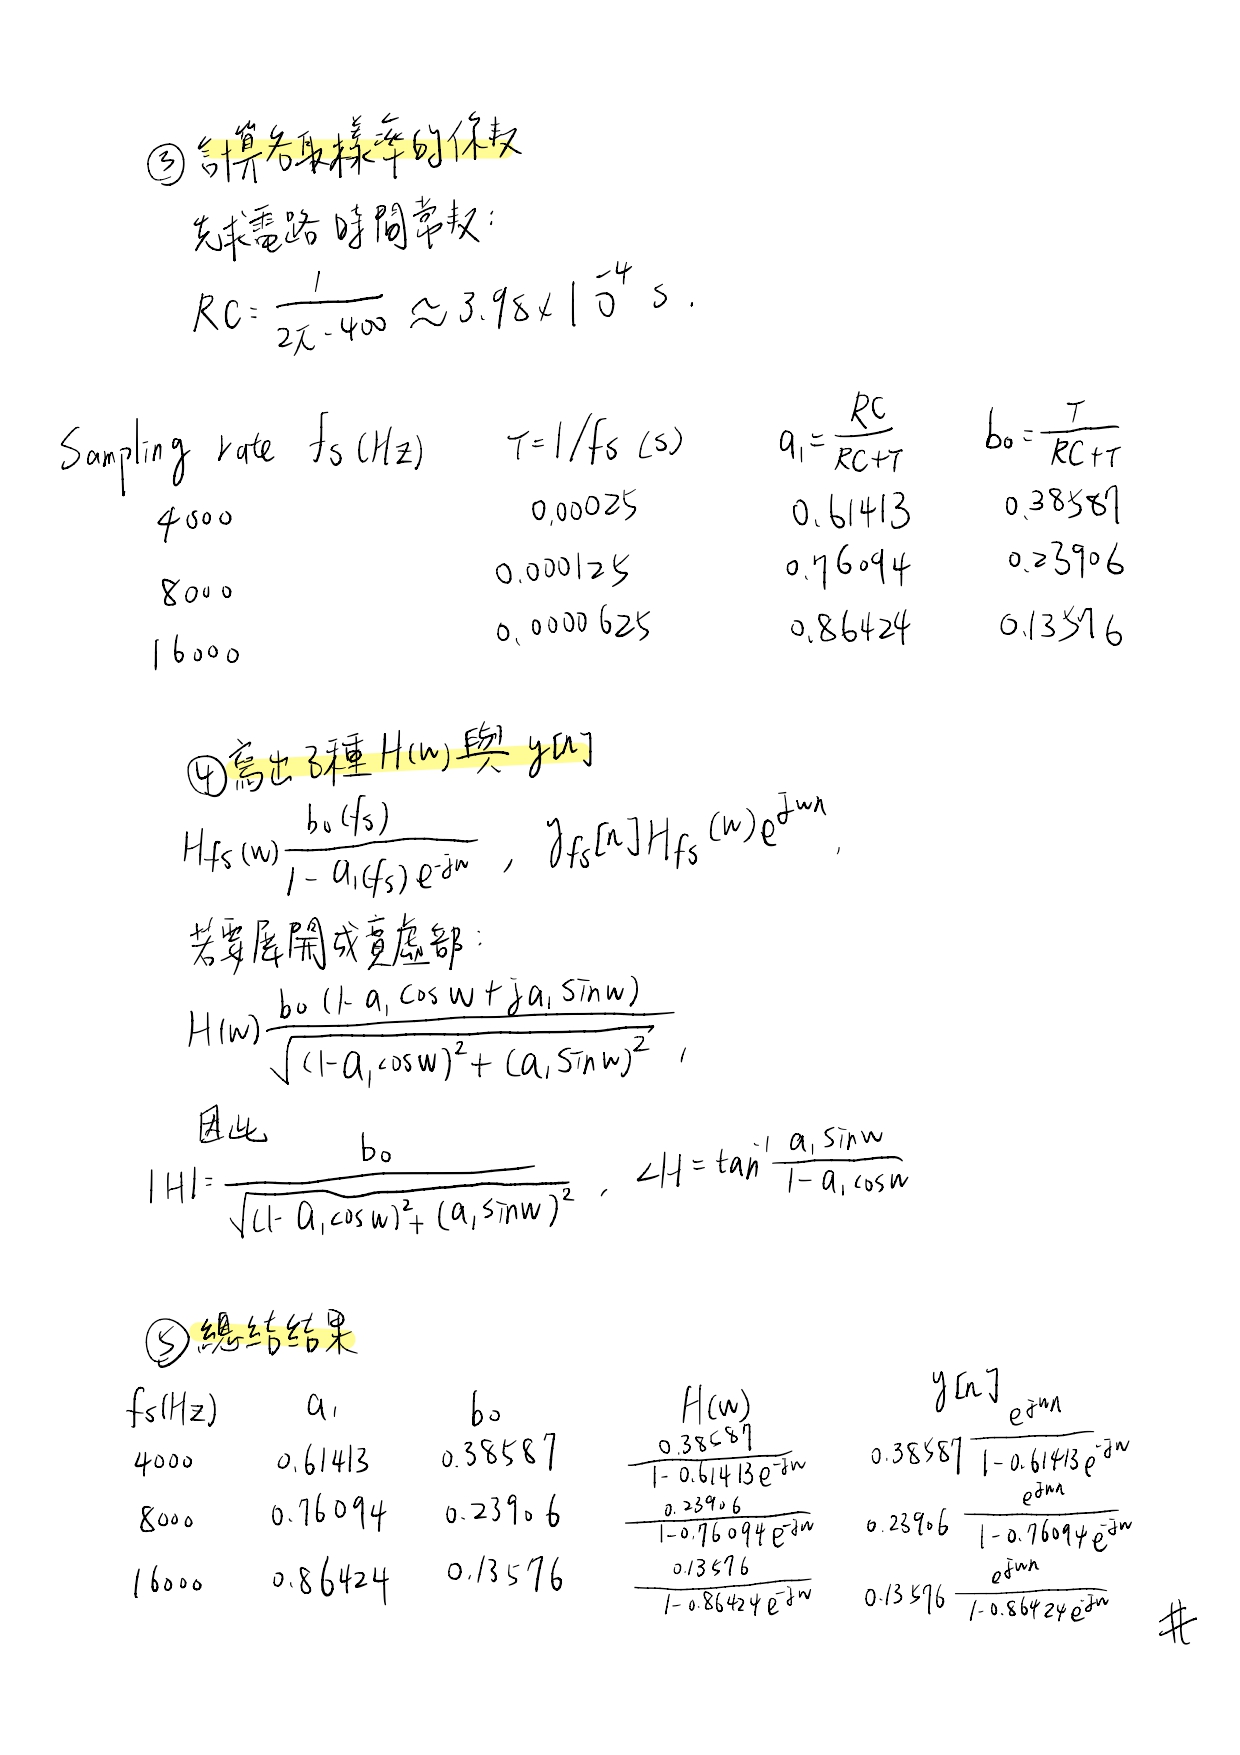 ③ 計算各取樣率的係數
先求電路時間常數:
RC = \frac{1}{2π·400} ≈ 3.98 × 10^{-4} s.
Sampling rate fs (Hz)   T = 1/fs (s)   a₁ = \frac{RC}{RC+T}   b₀ = \frac{T}{RC+T}
4000   0.00025   0.61413   0.38587
8000   0.000125   0.76094   0.23906
16000   0.0000625   0.86424   0.13576
④ 寫出3種 H(w) 與 y[n]
H_{fs}(w) \frac{b₀(fs)}{1 - a₁(fs) e^{-jw}} , y_{fs}[n] H_{fs}(w) e^{jwn} ,
若要展開成實虛部:
H(w) \frac{b₀ (1 - a₁ cos w + j a₁ sin w)}{\sqrt{(1 - a₁ cos w)^2 + (a₁ sin w)^2}} ,
因此
|H| = \frac{b₀}{\sqrt{(1 - a₁ cos w)^2 + (a₁ sin w)^2}} , ∠H = tan^{-1} \frac{a₁ sin w}{1 - a₁ cos w}
⑤ 總結結果
fs (Hz)   a₁   b₀   H(w)   y[n]
4000   0.61413   0.38587   \frac{0.38587}{1 - 0.61413 e^{-jw}}   0.38587 \frac{e^{jwn}}{1 - 0.61413 e^{-jw}}
8000   0.76094   0.23906   \frac{0.23906}{1 - 0.76094 e^{-jw}}   0.23906 \frac{e^{jwn}}{1 - 0.76094 e^{-jw}}
16000   0.86424   0.13576   \frac{0.13576}{1 - 0.86424 e^{-jw}}   0.13576 \frac{e^{jwn}}{1 - 0.86424 e^{-jw}}
#